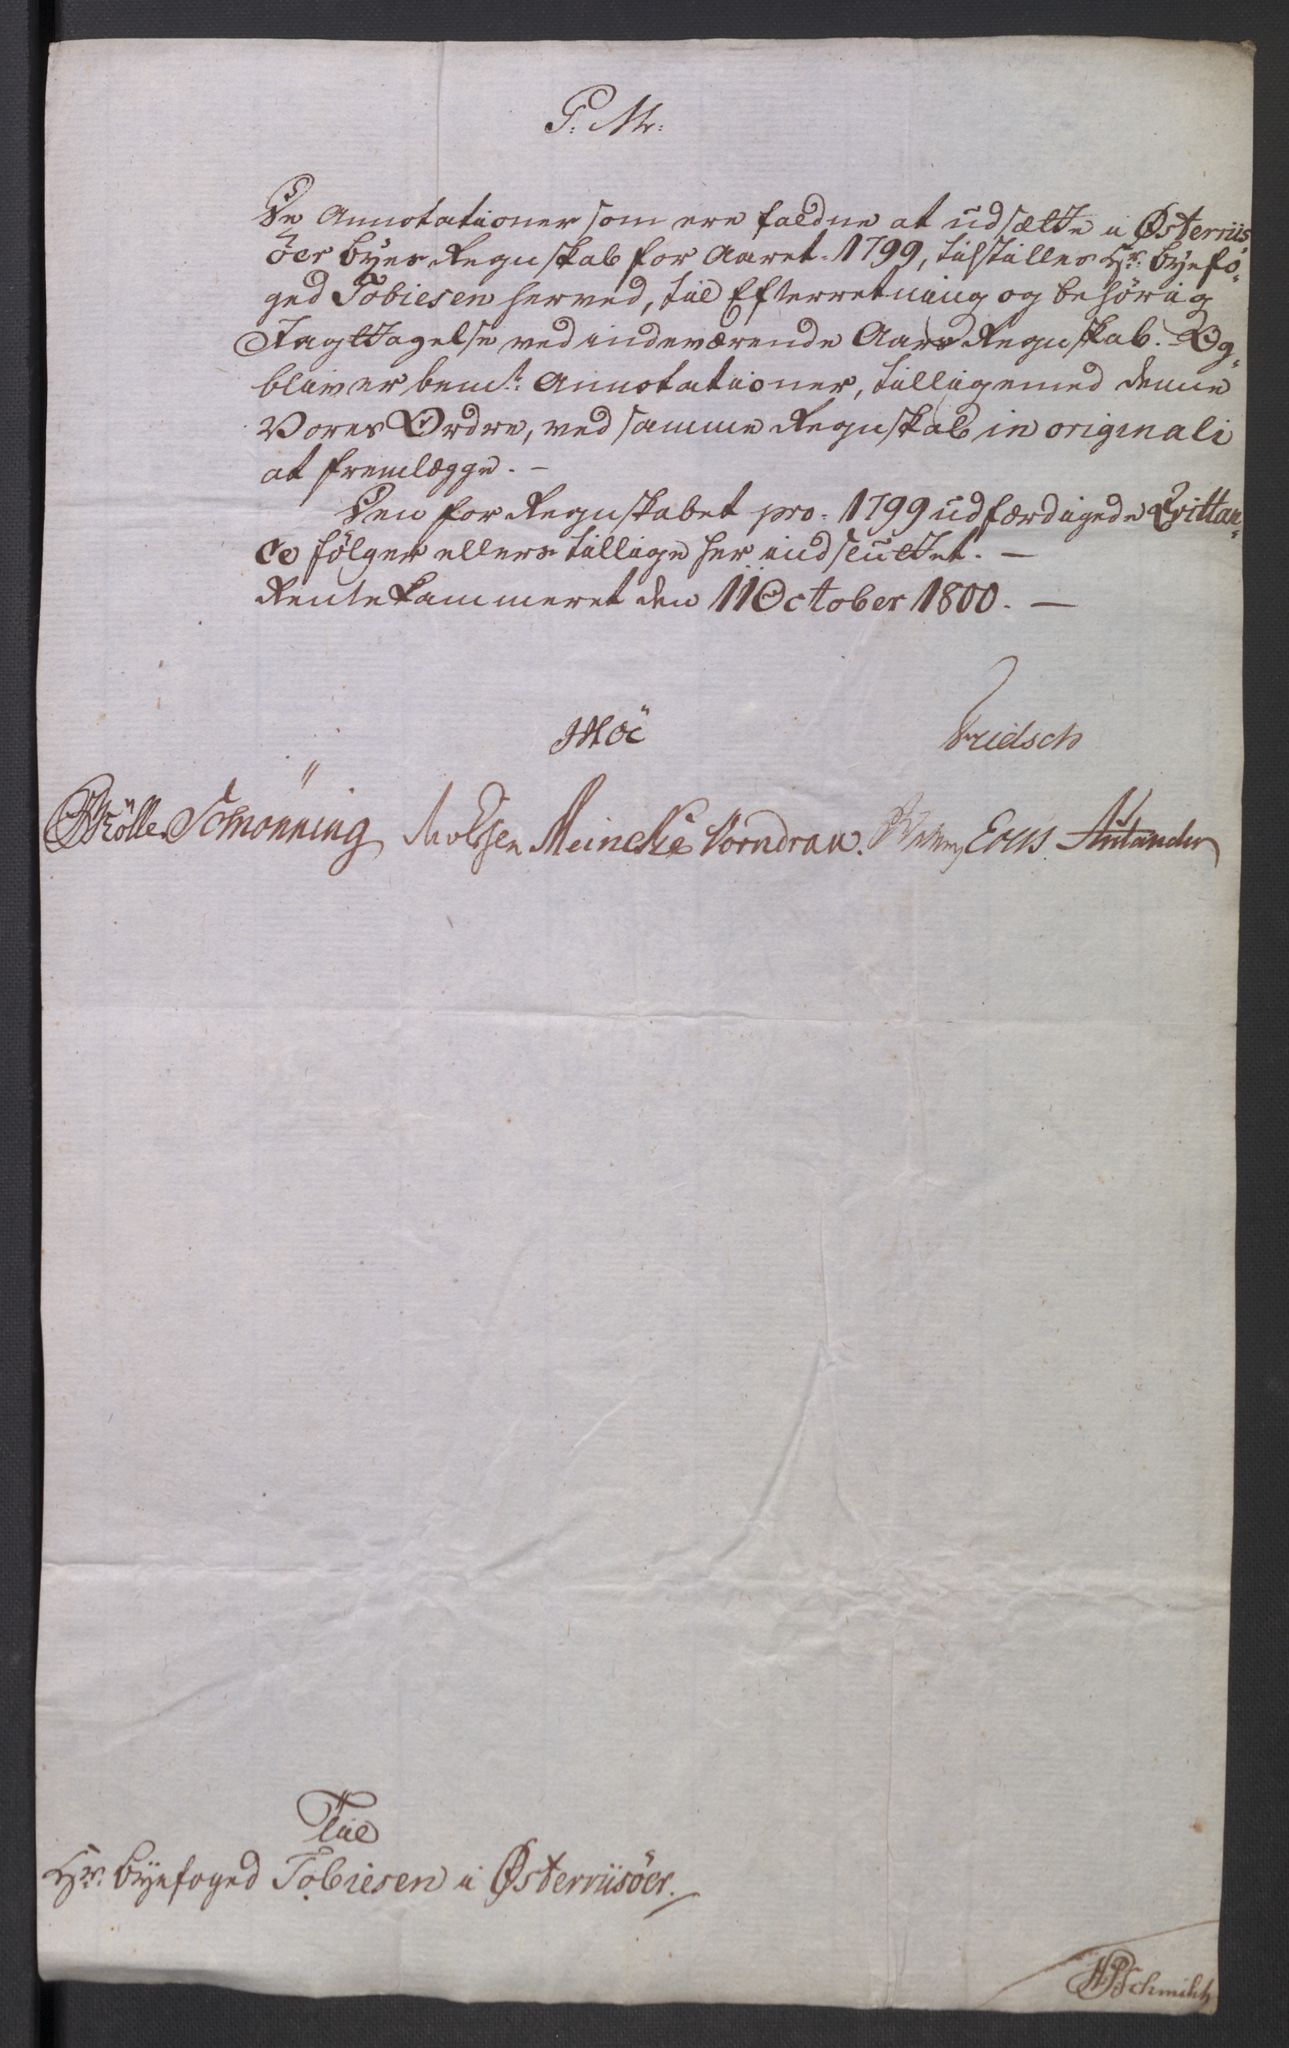 P. M.
De Annotationer som ere faldne at udsætte i Østerriis-
öer Byes Regnskab for Aaret 1799, tilstilles Hr: Byefo-
ged Tobiesen herved, til Efterretning og behörig
Iagttagelse ved indeværende Aars Regnskab. Og
bliver bemte: Annotationer, tilligemed denne
Vores Ordre, ved samme Regnskab in originali
at fremlægge. -
Den for Regnskabet pro. 1799 udfærdigede Qvittan-
ce fölger ellers tillige her indsluttet. -
Rentekammeret den 11 October 1800. -
Fridsch
Mölle. Schönning Meincke Vorndran.
Til
Hr: Byefoged Tobiesen i Østerriisöer.